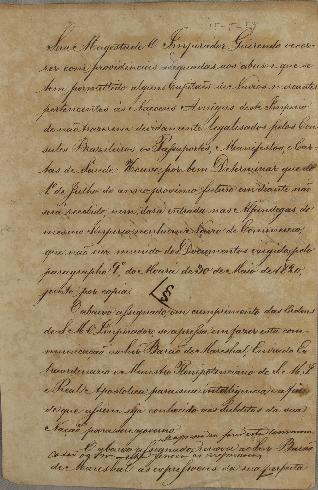 Sua Magestade O Imperador, Querendo occor-
rer com providencias adequadas aos abusos que se
tem permettido alguns Capitães de Navios mercantes
pertencentes às Nacoens Amigas deste Imperio
de não trazerem devidamente legalisados pelos Con-
sules Brazileiros os Passaportes, e Manifestos, e Car-
tas de Saude: Houve por bem Determinar que do
1º de Julho do anno proximo futuro em diante não
será recebido, nem dará entrada nas Alfandegas do
mesmo Imperio nenhum Navio de Commercio,
que não vier munido dos Documentos exigidos pelo
paragrapho 9º do Alvará de 30 de Maio de 1820,
junto por copia.
§
O abaixo assignado, em cumprimento das Ordens
de S. M. O Imperador se apressa em fazer esta com-
municação ao Snr. Barão de Mareshal, Enviado Ex-
traordinario e Ministro Plenipotenciario de S. M. I.
e Real e Apostolica para sua intelligencia, e a fim
de que assim seja constado aos Subditos da sua
Nação para seu governo
O abaixo assignado, renova ao Snr. Barão
de Mareshal as expressoens da sua perfeita